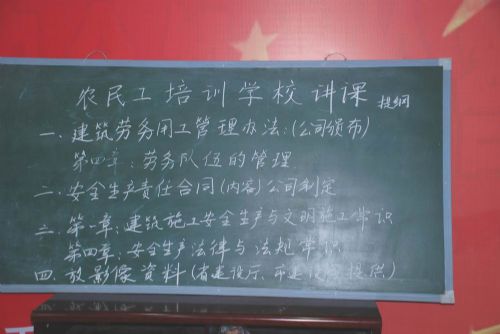 农民工培训学校讲课 提纲
一.建筑劳务用工管理办法:(公司颁布)
第四章:劳务队伍的管理
二.安全生产责任合同(内容)公司制定
三.第一章:建筑施工安全生产与文明施工常识
第四章:安全生产法律与法规常识
四.放影像资料(省建设厅、市建设局提供)